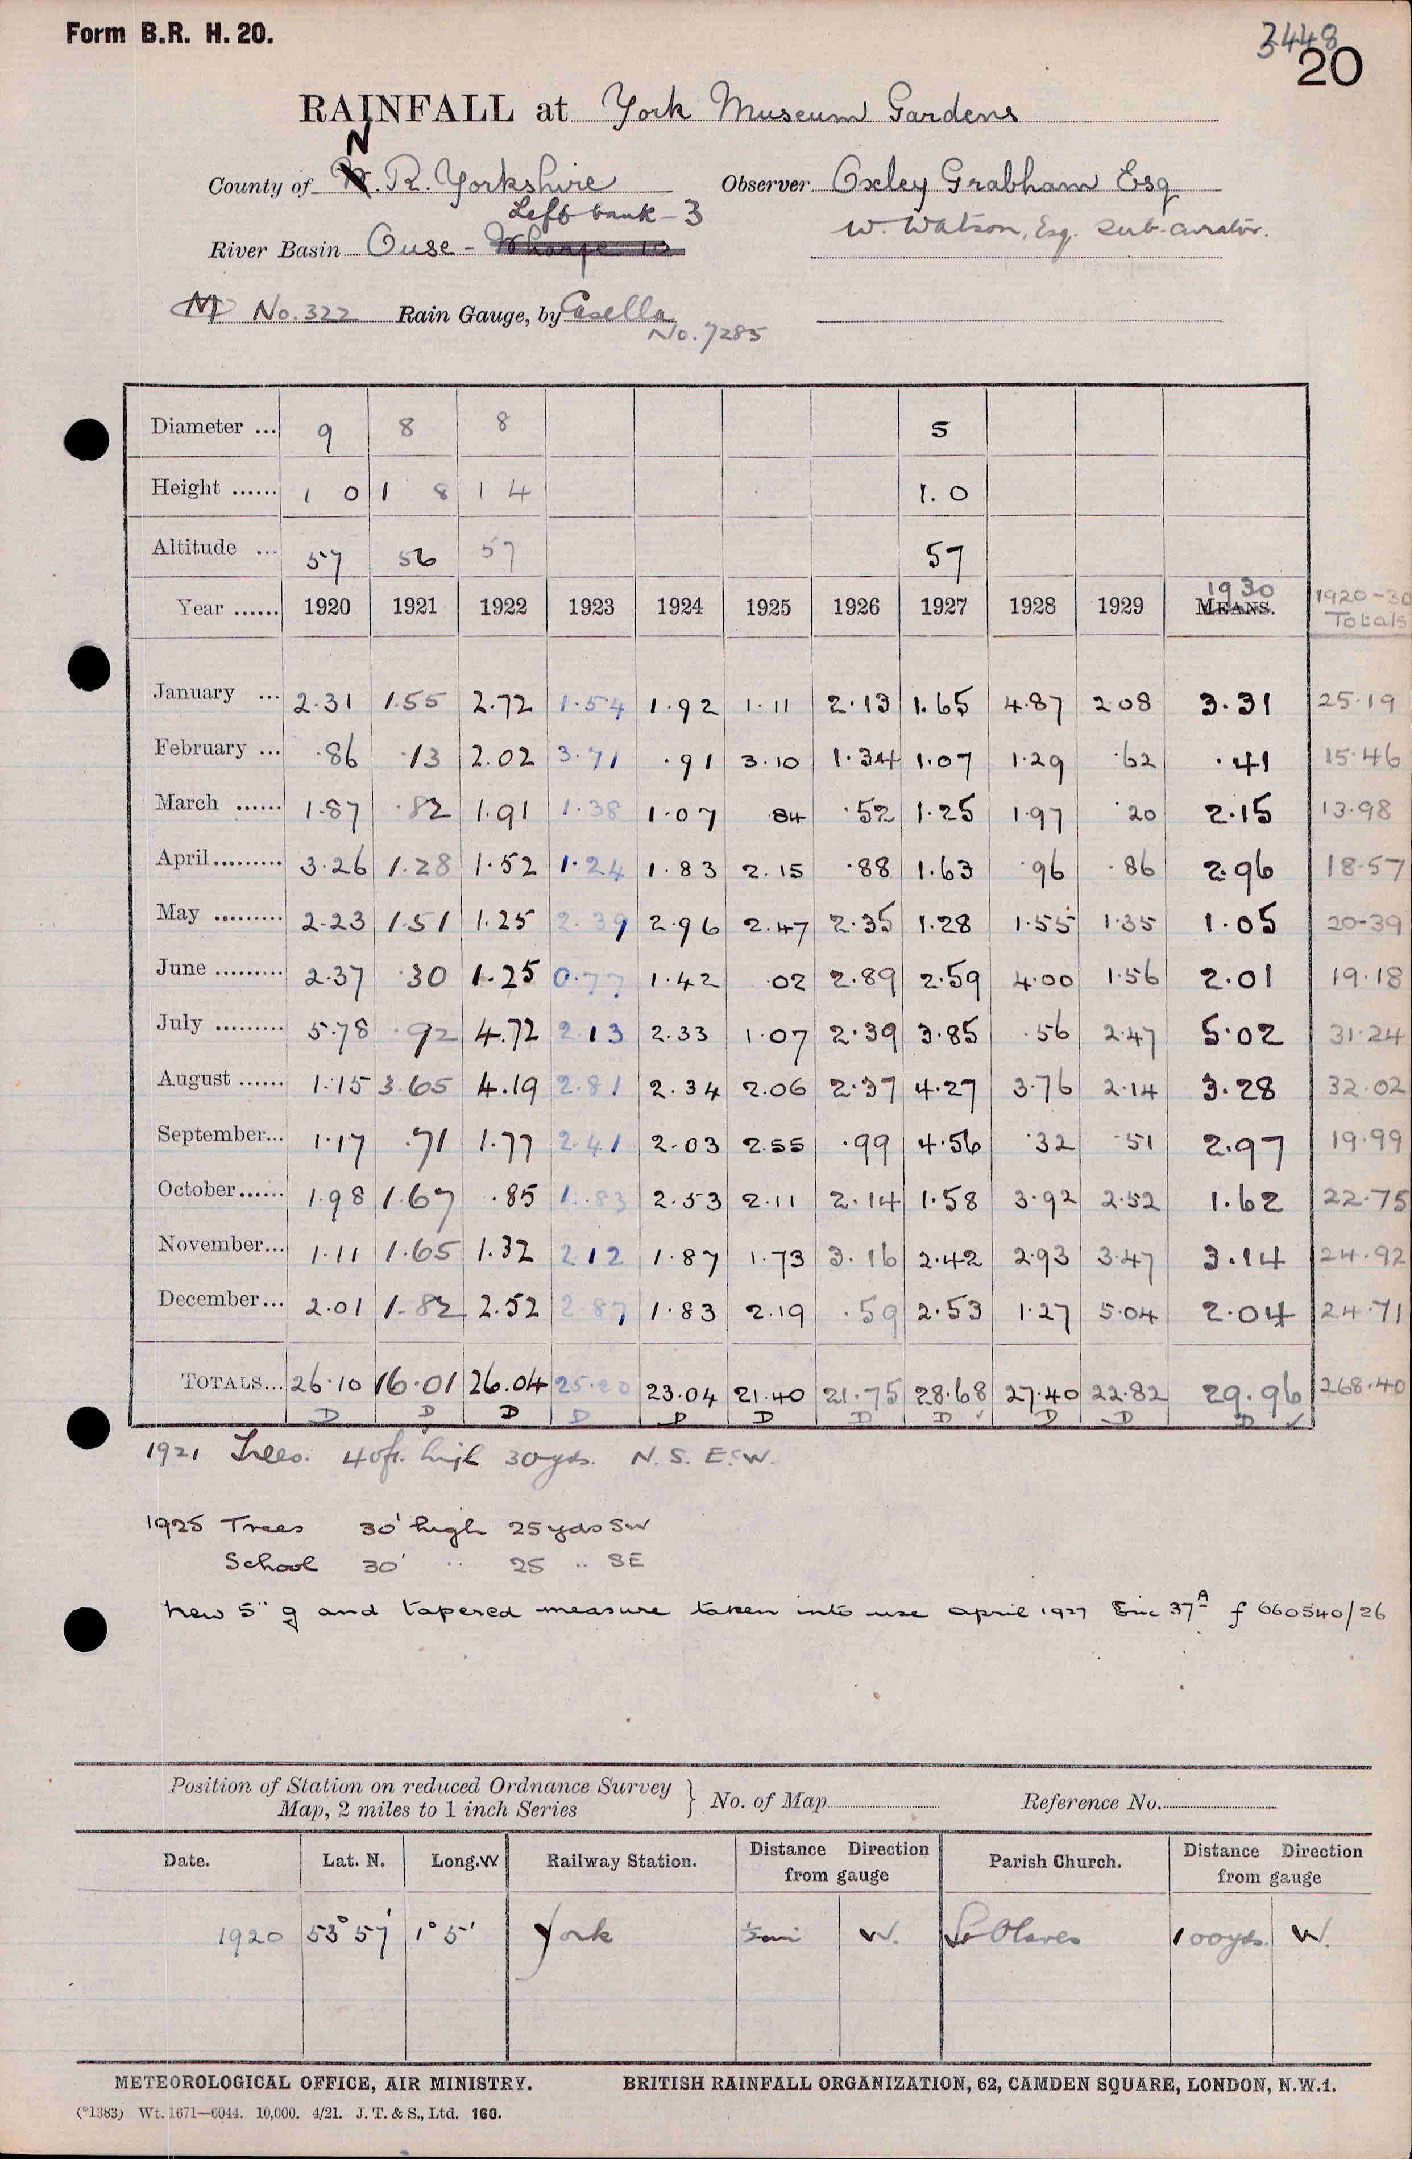 Form B.R. H. 20.
3448
20
RAINFALL at York Museum Gardens
N
County of R. Yorkshire Observer Oxley Grabham Esq
Left bank - 3
W. Watson, Esq. Sub-curator.
River Basin Ouse - Wharfe 10
M No. 322 Rain Gauge, by Casella
No. 7285
Diameter ... 9 8 8 5
Height ...... 1 0 1 8 1 4 1.0
Altitude ... 57 56 57 57
Year ...... 1920 1921 1922 1923 1924 1925 1926 1927 1928 1929 1930 MEANS. 1920-30 Totals
January ... 2.31 1.55 2.72 1.54 1.92 1.11 2.13 1.65 4.87 2.08 3.31 25.19
February ... .86 .13 2.02 3.71 .91 3.10 1.34 1.07 1.29 .62 .41 15.46
March ...... 1.87 .82 1.91 1.38 1.07 .84 .52 1.25 1.97 .20 2.15 13.98
April ......... 3.26 1.28 1.52 1.24 1.83 2.15 .88 1.63 .96 .86 2.96 18.57
May ......... 2.23 1.51 1.25 2.39 2.96 2.47 2.35 1.28 1.55 1.35 1.05 20-39
June ......... 2.37 .30 1.25 0.77 1.42 .02 2.89 2.59 4.00 1.56 2.01 19.18
July ......... 5.78 .92 4.72 2.13 2.33 1.07 2.39 3.85 .56 2.47 5.02 31.24
August ...... 1.15 3.65 4.19 2.81 2.34 2.06 2.37 4.27 3.76 2.14 3.28 32.02
September... 1.17 .71 1.77 2.41 2.03 2.55 .99 4.56 .32 .51 2.97 19.99
October...... 1.98 1.67 .85 1.83 2.53 2.11 2.14 1.58 3.92 2.52 1.62 22.75
November... 1.11 1.65 1.32 2.12 1.87 1.73 3.16 2.42 2.93 3.47 3.14 24.92
December... 2.01 1.82 2.52 2.87 1.83 2.19 .59 2.53 1.27 5.04 2.04 24.71
TOTALS... 26.10 16.01 26.04 25.20 23.04 21.40 21.75 28.68 27.40 22.82 29.96 268.40
D D D D D D D D ✓ D D D ✓
1921 Trees. 40ft. high 30yds. N. S. E. W.
1925 Trees 30' high 25 yds SW
School 30' " 25 " SE
New 5" g and tapered measure taken into use april 1927 Enc 37A f 660540/26
Position of Station on reduced Ordnance Survey
Map, 2 miles to 1 inch Series } No. of Map Reference No.
Date. Lat. N. Long. W Railway Station. Distance Direction from gauge Parish Church. Distance Direction from gauge
1920 53° 57' 1° 5' York ½mi W. St Olaves 100yds. W.
METEOROLOGICAL OFFICE, AIR MINISTRY. BRITISH RAINFALL ORGANIZATION, 62, CAMDEN SQUARE, LONDON, N.W.1.
(*1383) Wt. 1671—6044. 10,000. 4/21. J. T. & S., Ltd. 160.